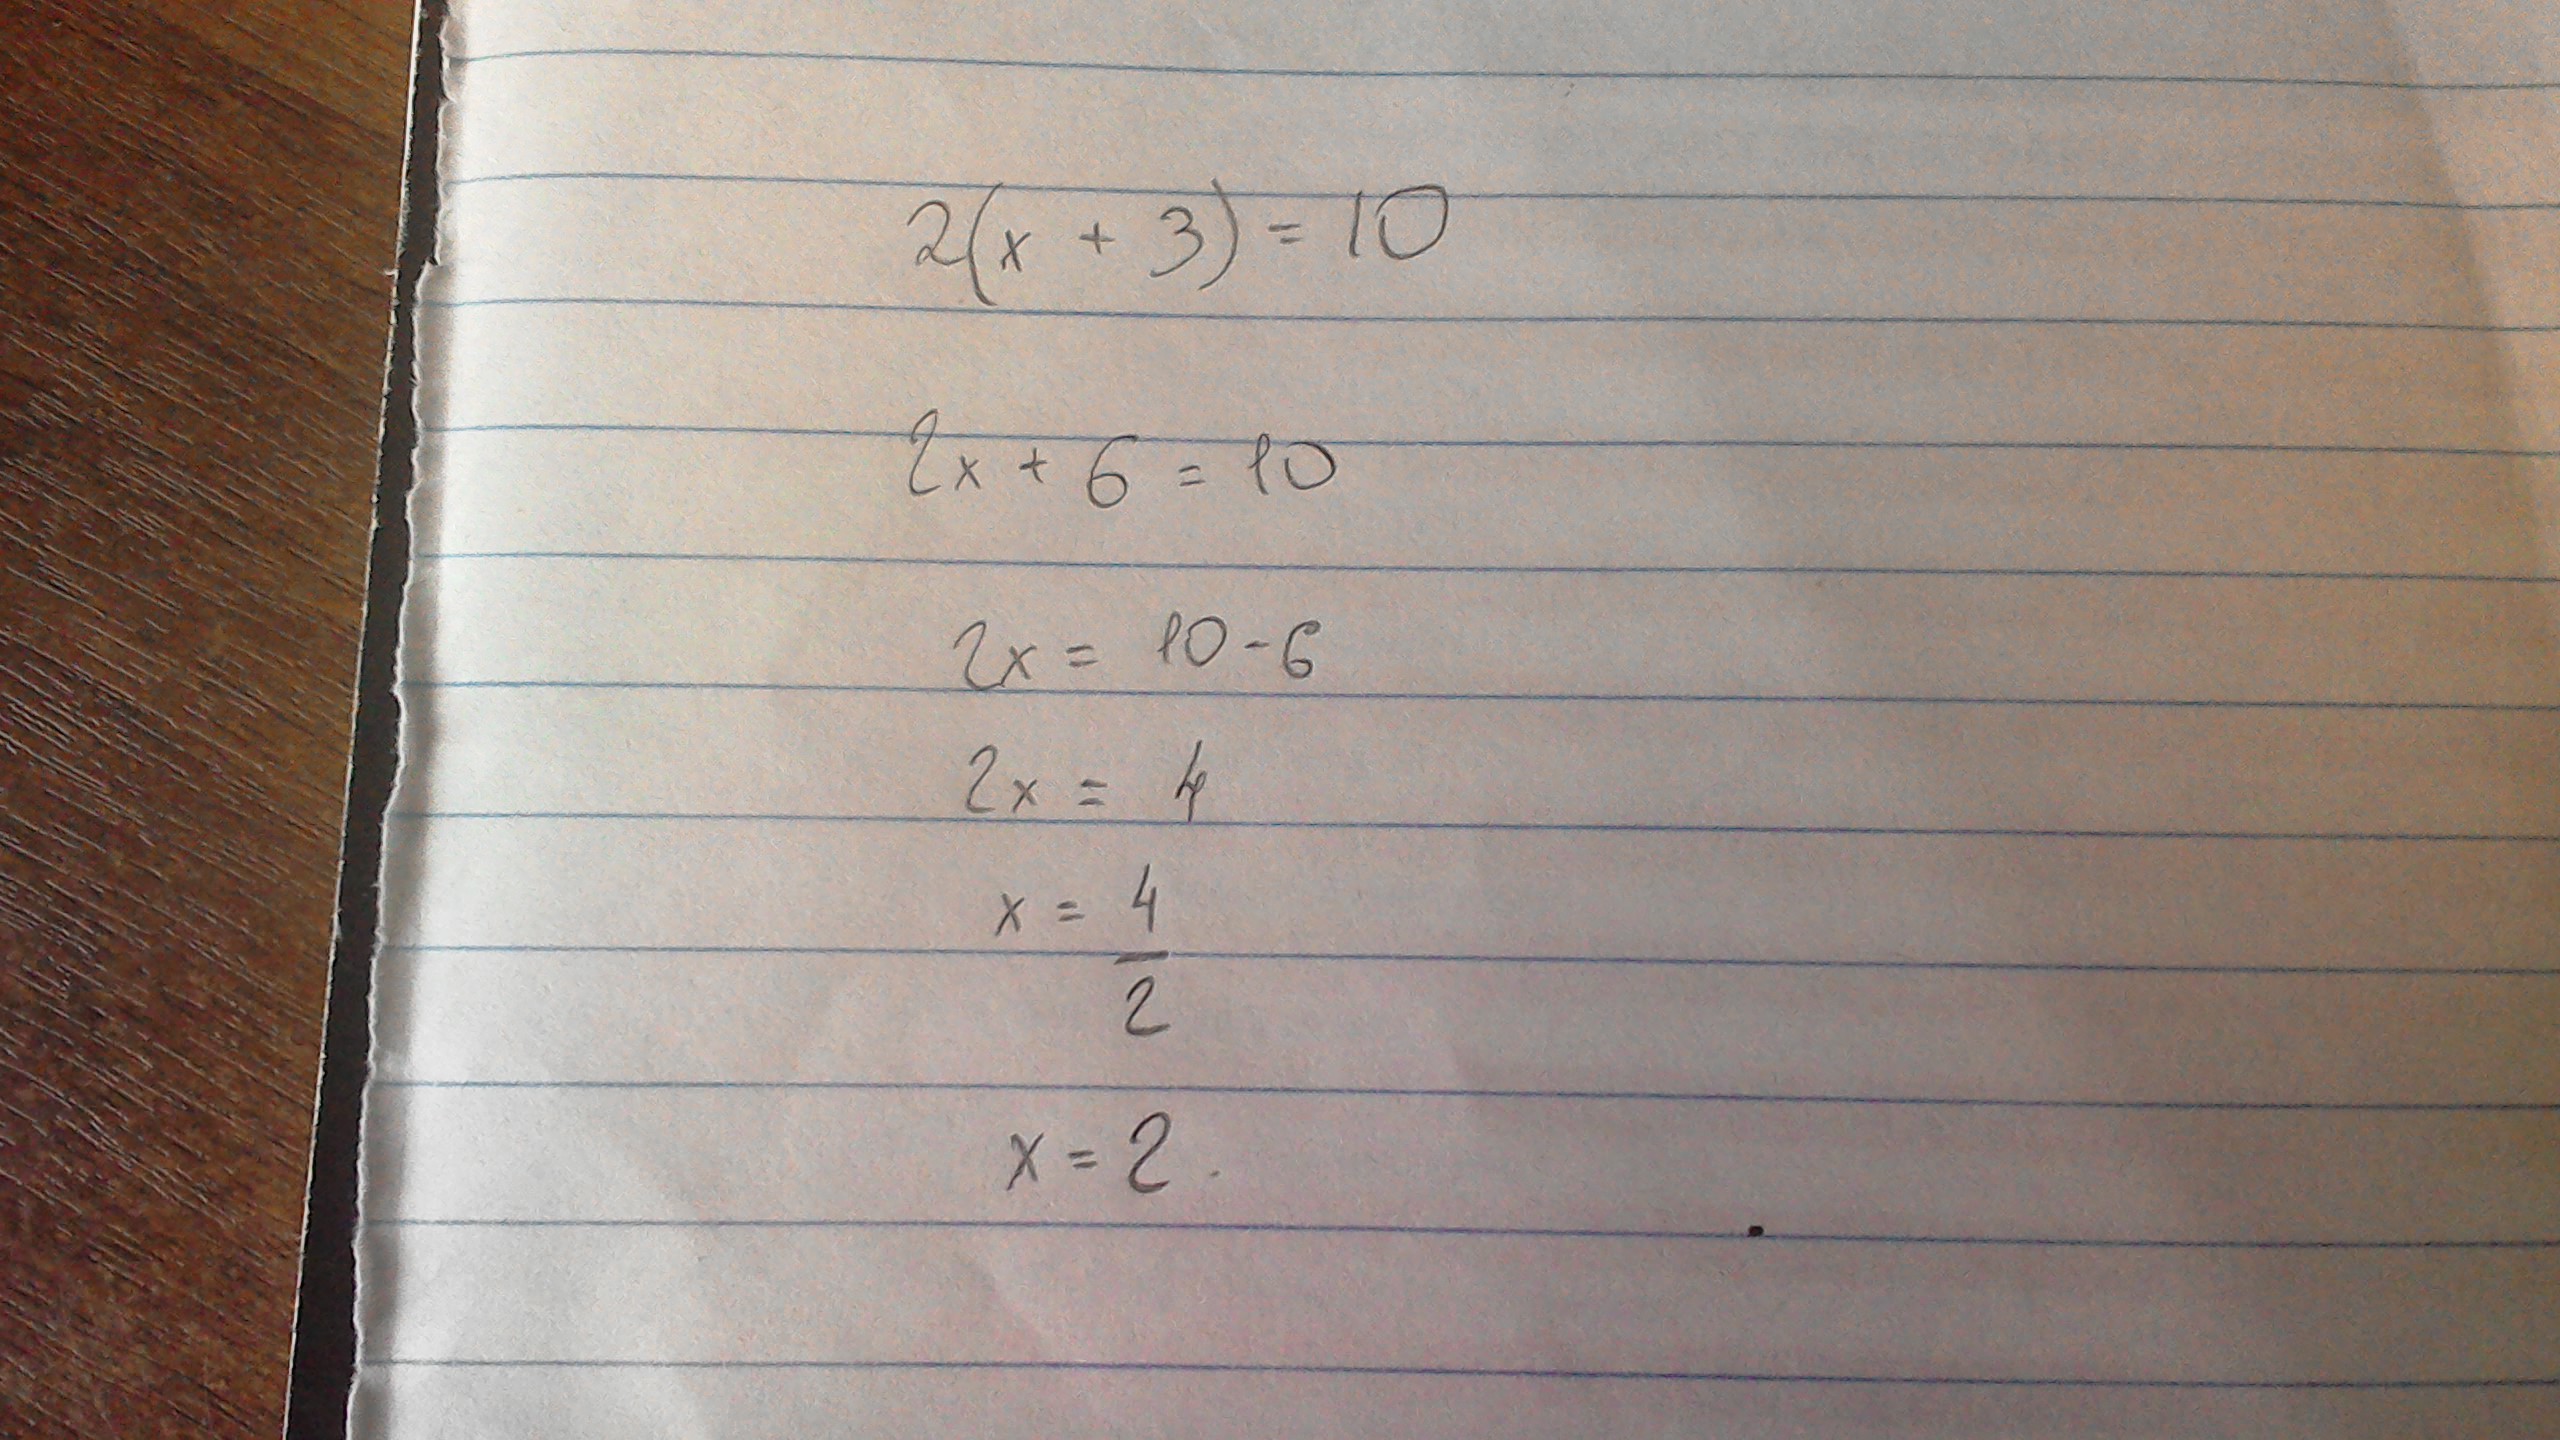 2(x + 3) = 10
2x + 6 = 10
2x = 10 - 6
2x = 4
x = 4/2
x = 2.